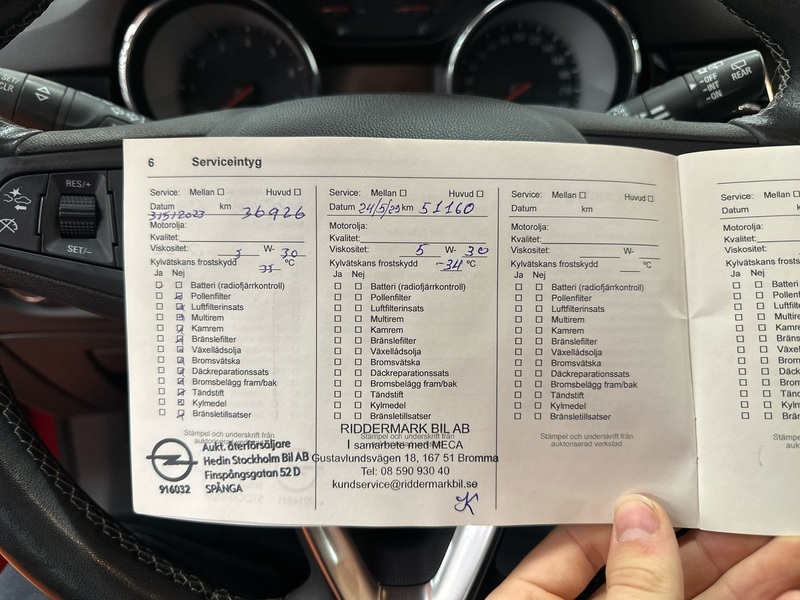 OFF
INT
ON
REAR
SET/
CLR
RES/+
SET/–
6 Serviceintyg
Service: Mellan Huvud
Datum km
31512023 36926
Motorolja:
Kvalitet:
Viskositet: 5 W- 30
Kylvätskans frostskydd 35 °C
Ja Nej
Batteri (radiofjärrkontroll)
Pollenfilter
Luftfilterinsats
Multirem
Kamrem
Bränslefilter
Växellådsolja
Bromsvätska
Däckreparationssats
Bromsbelägg fram/bak
Tändstift
Kylmedel
Bränsletillsatser
Stämpel och underskrift från
auktoriserad verkstad
Aukt. återförsäljare
Hedin Stockholm Bil AB
Finspångsgatan 52 D
916032 SPÅNGA
Service: Mellan Huvud
Datum 24/5/29 km 51160
Motorolja:
Kvalitet:
Viskositet: 5 W- 30
Kylvätskans frostskydd -34 °C
Ja Nej
Batteri (radiofjärrkontroll)
Pollenfilter
Luftfilterinsats
Multirem
Kamrem
Bränslefilter
Växellådsolja
Bromsvätska
Däckreparationssats
Bromsbelägg fram/bak
Tändstift
Kylmedel
Bränsletillsatser
RIDDERMARK BIL AB
Stämpel och underskrift från
I samarbete med MECA
Gustavlundsvägen 18, 167 51 Bromma
Tel: 08 590 930 40
kundservice@riddermarkbil.se
Service: Mellan Huvud
Datum km
Motorolja:
Kvalitet:
Viskositet: W-
Kylvätskans frostskydd °C
Ja Nej
Batteri (radiofjärrkontroll)
Pollenfilter
Luftfilterinsats
Multirem
Kamrem
Bränslefilter
Växellådsolja
Bromsvätska
Däckreparationssats
Bromsbelägg fram/bak
Tändstift
Kylmedel
Bränsletillsatser
Stämpel och underskrift från
auktoriserad verkstad
Service: Mellan
Datum
Motorolja:
Kvalitet:
Viskositet:
Kylvätskans fros
Ja Nej
Batteri
Pollenf
Luftfilt
Multire
Kamre
Bränsl
Växel
Brom
Däck
Brom
Tänd
Kylm
Brän
Stämp
a